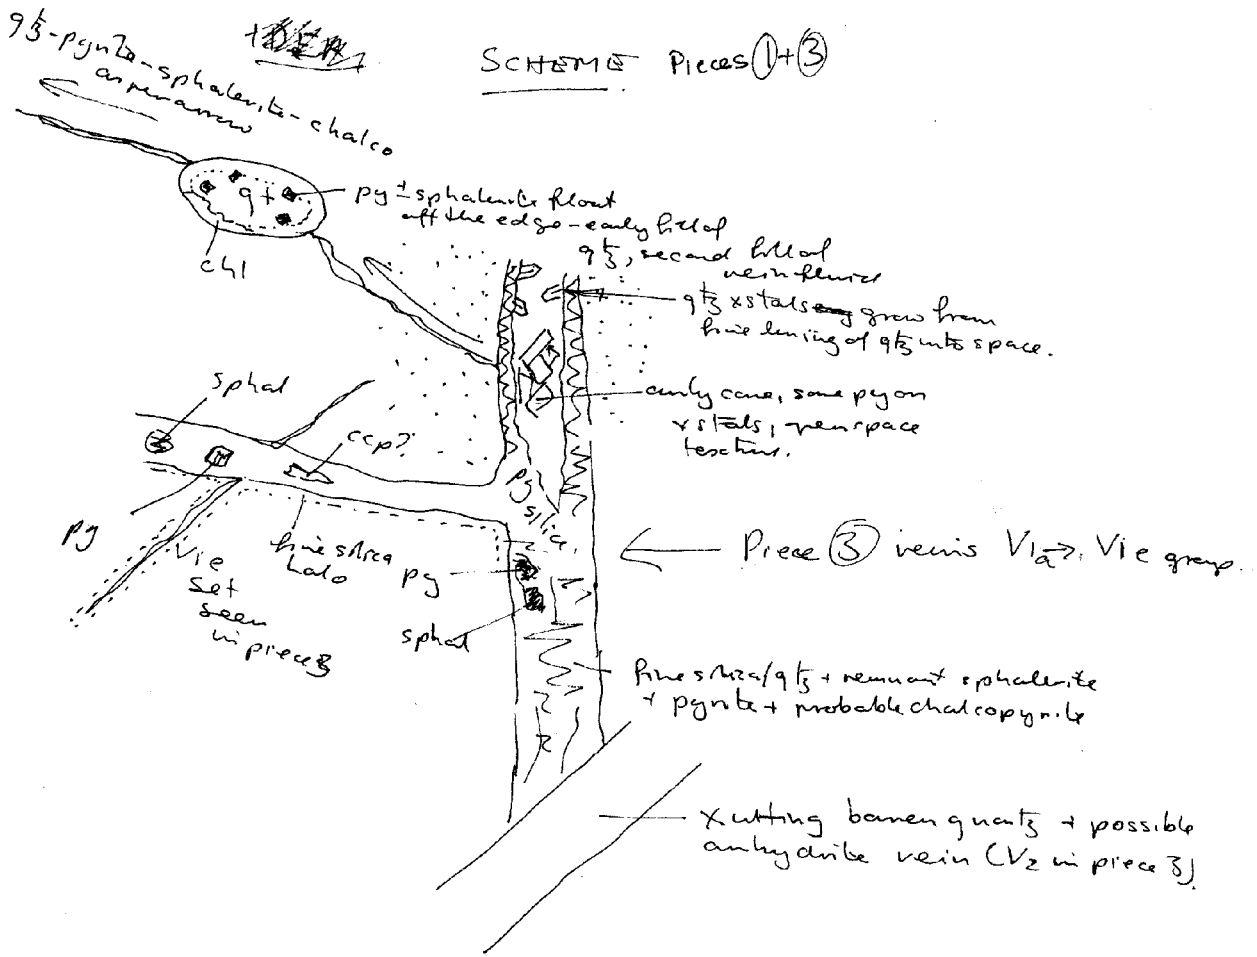 SCHEME Pieces 1 + 3
qtz-pyrite-sphalerite-chalco
as per arrow
qtz
chl
py ± sphalerite float
off the edge - early fill of
qtz, second fill of
vein fluid
qtz xstals grow from
fine lining of qtz into space.
some py on
xstals, open space
texture.
sphal
ccp?
py
V1e
set
seen
in piece 3
fine silica
halo
py
silica
py
sphal
Piece 3 veins V1a → V1e group.
fine silica/qtz + remnant sphalerite
+ pyrite + probable chalcopyrite
Xutting barren quartz + possible
anhydrite vein (V2 in piece 3).